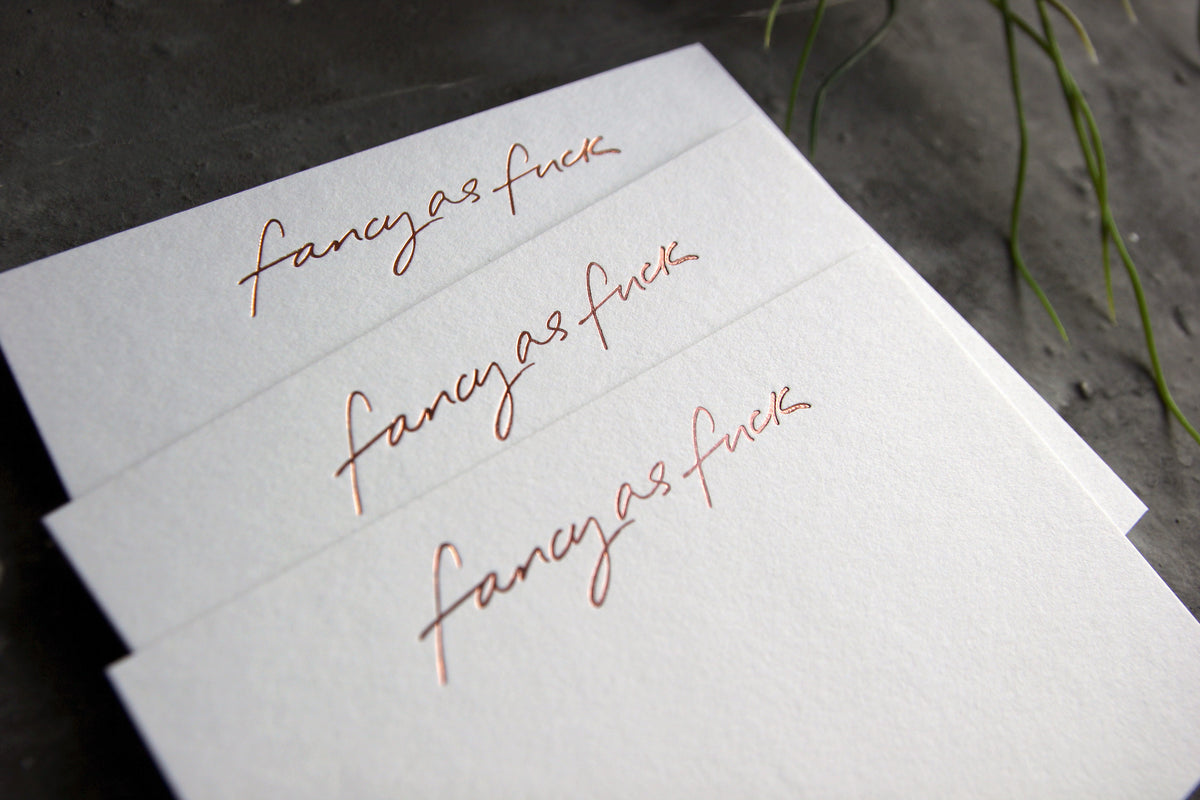 fancy as fuck
fancy as fuck
fancy as fuck